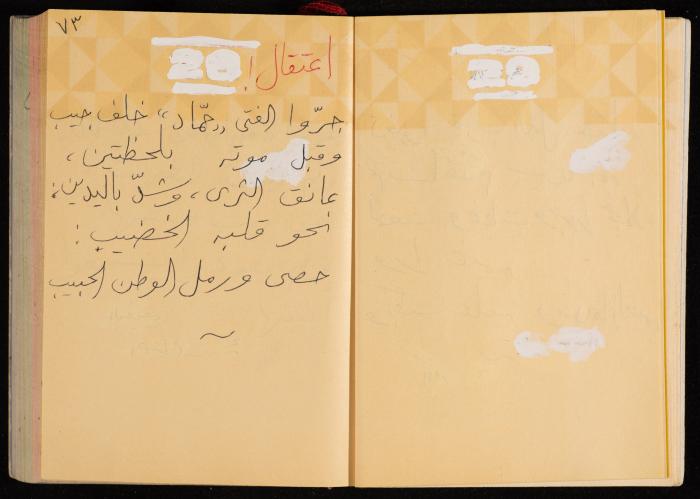 ٧٣
20
اعتقال!
جرّوا الفتى "حمّاد"، خلف جيب
وقبل موته بلحظتين،
عانق الثرى، وشدّ باليدين:
نحو قلبه الخضيب:
حصى ورمل الوطن الحبيب
~
20